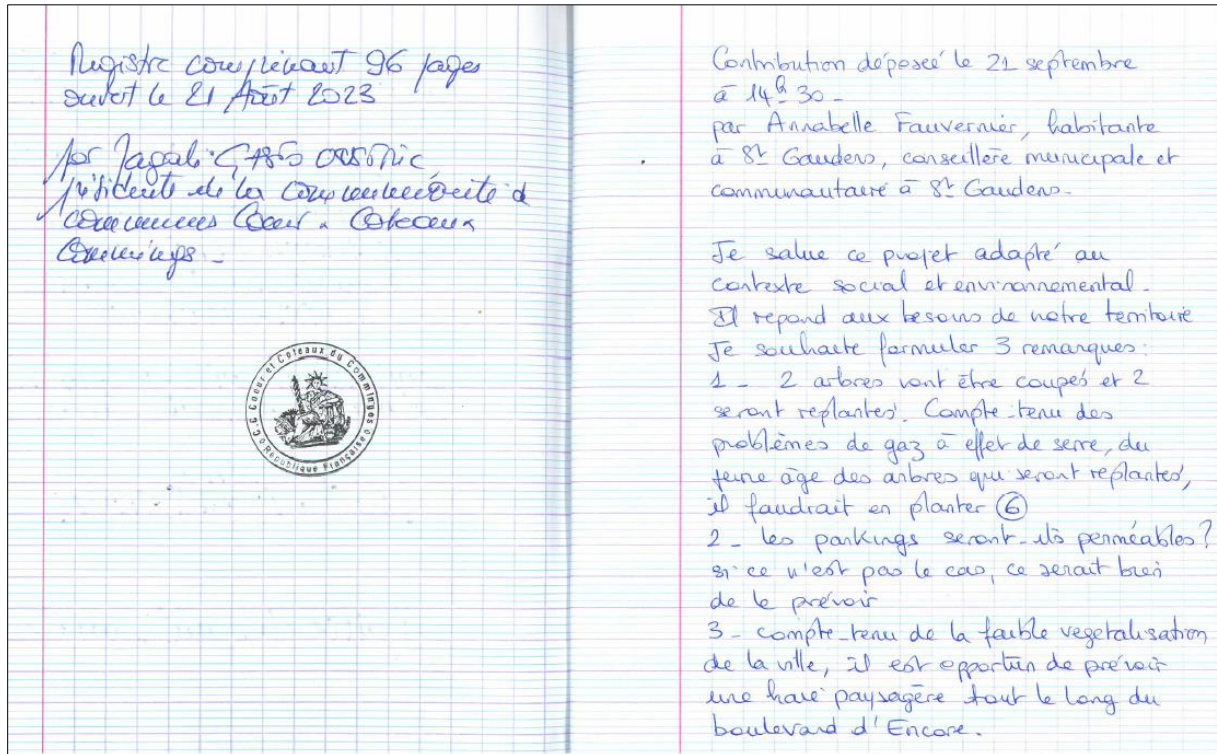 Registre comprenant 96 pages
ouvert le 21 Août 2023
par Magali
présidente de la communauté de
communes Coeur & Coteaux
Comminges -
C.C. Coeur et Coteaux du Comminges
République Française
Contribution déposée le 21 septembre
à 14h 30 -
par Annabelle Fauvernier, habitante
à St Gaudens, conseillère municipale et
communautaire à St Gaudens -
Je salue ce projet adapté au
contexte social et environnemental -
Il répond aux besoins de notre territoire
Je souhaite formuler 3 remarques :
1 - 2 arbres vont être coupés et 2
seront replantés. Compte-tenu des
problèmes de gaz à effet de serre, du
jeune âge des arbres qui seront replantés,
il faudrait en planter 6
2 - les parkings seront-ils perméables ?
si ce n'est pas le cas, ce serait bien
de le prévoir
3 - compte-tenu de la faible vegetalisation
de la ville, il est opportun de prévoir
une haie paysagère tout le long du
boulevard d'Encore.